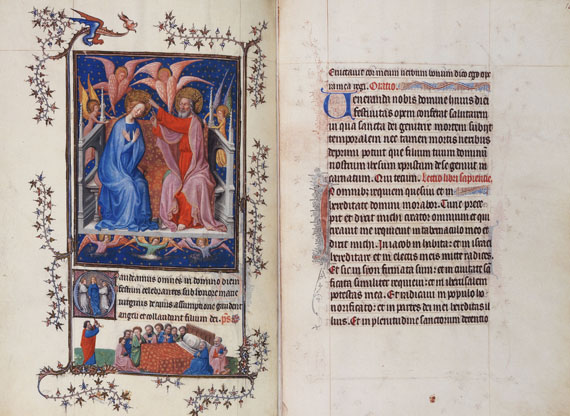 audeamus omnes in domino diem
festum celebrantes sub honore marie
virginis de cuius assumptione gaudent
angeli et collaudant filium dei. ps
Eructavit cor meum verbum bonum dico ego ope
ra mea regi. Oratio.
Veneranda nobis domine huius diei
festivitas opem conferat salutarem
in qua sancta dei genitrix mortem subiit
temporalem nec tamen mortis nexibus
deprimi potuit que filium tuum dominum
nostrum de se genuit in
carnatum. Qui tecum. Lectio libri sapientie.
In omnibus requiem quesivi et in
hereditate domini morabor. Tunc prece
pit et dixit michi creator omnium et qui
creavit me requievit in tabernaculo meo et
dixit michi. In iacob inhabita et in israel
hereditare et in electis meis mitte radices.
Et sic in syon firmata sum et in civitate sa
cificata similiter requievi et in iherusalem
potestas mea. Et radicavi in populo ho
norificato et in partes dei mei hereditas il
lius. Et in plenitudine sanctorum detentio